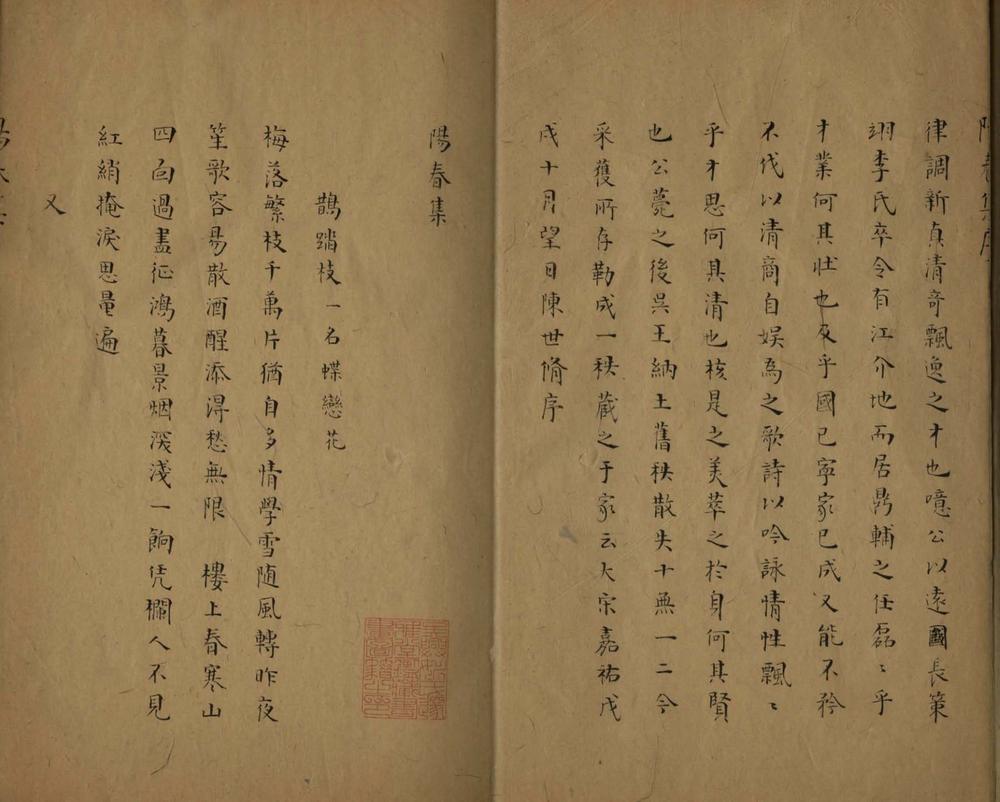 律調新貞清奇飄逸之才也噫公以遠圖長策
翊李氏卒令有江介地而居鼎輔之任磊〻乎
才業何其壯也及乎國已寧家已成又能不矜
不伐以清商自娛為之歌詩以吟詠情性飄〻
乎才思何其清也核是之美萃之於身何其賢
也公薨之後吳王納土舊秩散失十無一二今
采獲所存勒成一秩藏之于家云大宋嘉祐戊
戌十月望日陳世脩序
陽春集
鵲踏枝一名蝶戀花
梅落繁枝千萬片猶自多情學雪随風轉昨夜
笙歌容易散酒醒添得愁無限 樓上春寒山
四面過盡征鴻暮景烟深淺一餉凭欄人不見
紅綃掩淚思量遍
又